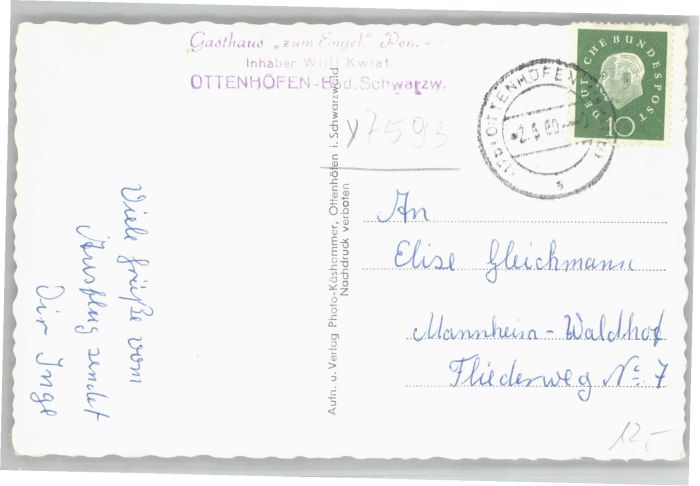 Gasthaus „zum Engel" Pen.
Inhaber Willi Kwiat
OTTENHÖFEN - Bad. Schwarzw.
DEUTSCHE BUNDESPOST
10
OTTENHÖFEN
-2.5.60
a
y7593
Aufn. u. Verlag Photo-Käshammer, Ottenhöfen i. Schwarzwald
Nachdruck verboten
Viele Grüße vom
Ausflug sendet
Dir Inge
An
Elise Gleichmann
Mannheim - Waldhof
Fliederweg No 7
12,-